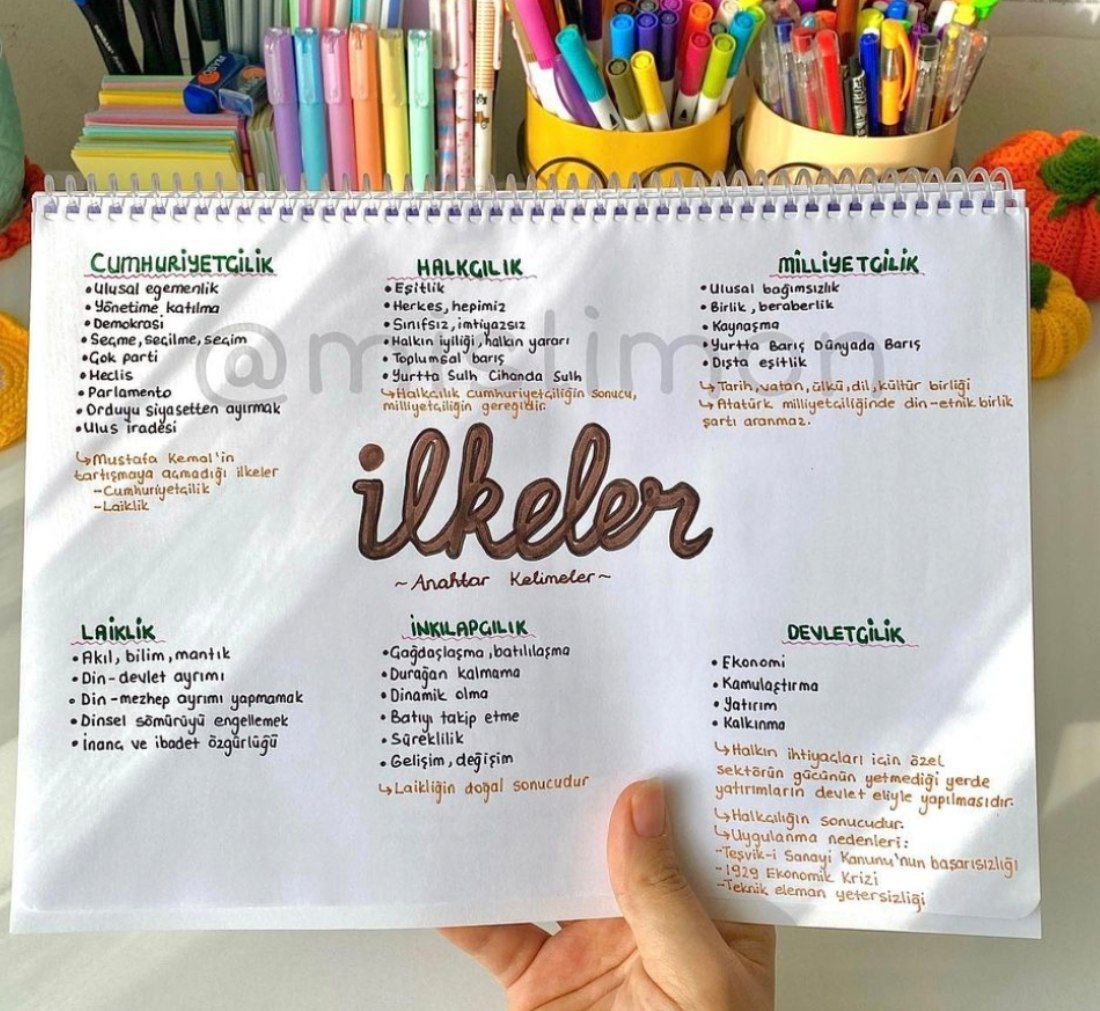 CUMHURİYETÇİLİK
• Ulusal egemenlik
• Yönetime katılma
• Demokrasi
• Seçme, seçilme, seçim
• Çok parti
• Meclis
• Parlamento
• Orduyu siyasetten ayırmak
• Ulus iradesi
↳ Mustafa Kemal'in
tartışmaya açmadığı ilkeler
- Cumhuriyetçilik
- Laiklik
HALKÇILIK
• Eşitlik
• Herkes, hepimiz
• Sınıfsız, imtiyazsız
• Halkın iyiliği, halkın yararı
• Toplumsal barış
• Yurtta Sulh Cihanda Sulh
↳ Halkçılık cumhuriyetçiliğin sonucu,
milliyetçiliğin gereğidir.
MİLLİYETÇİLİK
• Ulusal bağımsızlık
• Birlik, beraberlik
• Kaynaşma
• Yurtta Barış Dünyada Barış
• Dışta eşitlik
↳ Tarih, vatan, ülkü, dil, kültür birliği
↳ Atatürk milliyetçiliğinde din-etnik birlik
şartı aranmaz.
@mislimon
ilkeler
~ Anahtar Kelimeler ~
LAİKLİK
• Akıl, bilim, mantık
• Din-devlet ayrımı
• Din-mezhep ayrımı yapmamak
• Dinsel sömürüyü engellemek
• İnanç ve ibadet özgürlüğü
İNKILAPÇILIK
• Çağdaşlaşma, batılılaşma
• Durağan kalmama
• Dinamik olma
• Batıyı takip etme
• Süreklilik
• Gelişim, değişim
↳ Laikliğin doğal sonucudur
DEVLETÇİLİK
• Ekonomi
• Kamulaştırma
• Yatırım
• Kalkınma
↳ Halkın ihtiyaçları için özel
sektörün gücünün yetmediği yerde
yatırımların devlet eliyle yapılmasıdır.
↳ Halkçılığın sonucudur.
↳ Uygulanma nedenleri:
- Teşvik-i Sanayi Kanunu'nun başarısızlığı
- 1929 Ekonomik Krizi
- Teknik eleman yetersizliği